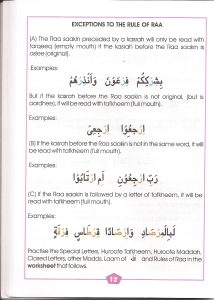 EXCEPTIONS TO THE RULE OF RAA
(A) The Raa saakin preceded by a kasrah will only be read with
tarqeeq (empty mouth) if the kasrah before the Raa saakin is
aslee (original).
Examples:
بِشِرْكِكُمْ فِرْعَوْنَ وَأَنْذِرْهُمْ
But if the kasrah before the Raa saakin is not original, (but
is aardhee), it will be read with tafkheem (full mouth).
Examples:
ارْجِعُوْا ارْجِعِيْ
(B) If the kasrah before the Raa saakin is not in the same word, it will
be read with tafkheem (full mouth).
Examples:
رَبِّ ارْجِعُوْنِ أَمِ ارْتَابُوْا
(C) If the Raa saakin is followed by a letter of tafkheem, it will be
read with tafkheem (full mouth).
Examples:
لَبِالْمِرْصَادِ وَاِرْصَادًا قِرْطَاسٍ فِرْقَةٍ
Practise the Special Letters, Huroofe Tafkheem, Huroofe Maddah,
Closed Letters, other Madds, Laam of الله and Rules of Raa in the
worksheet that follows.
12